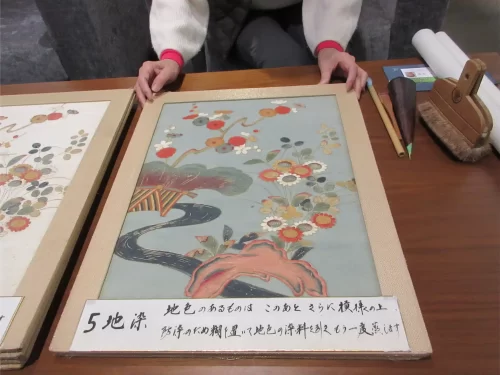 5 地染
地色のあるものは このあと さらに模様の上
防染のため糊を置いて地色の染料を引き もう一度蒸します